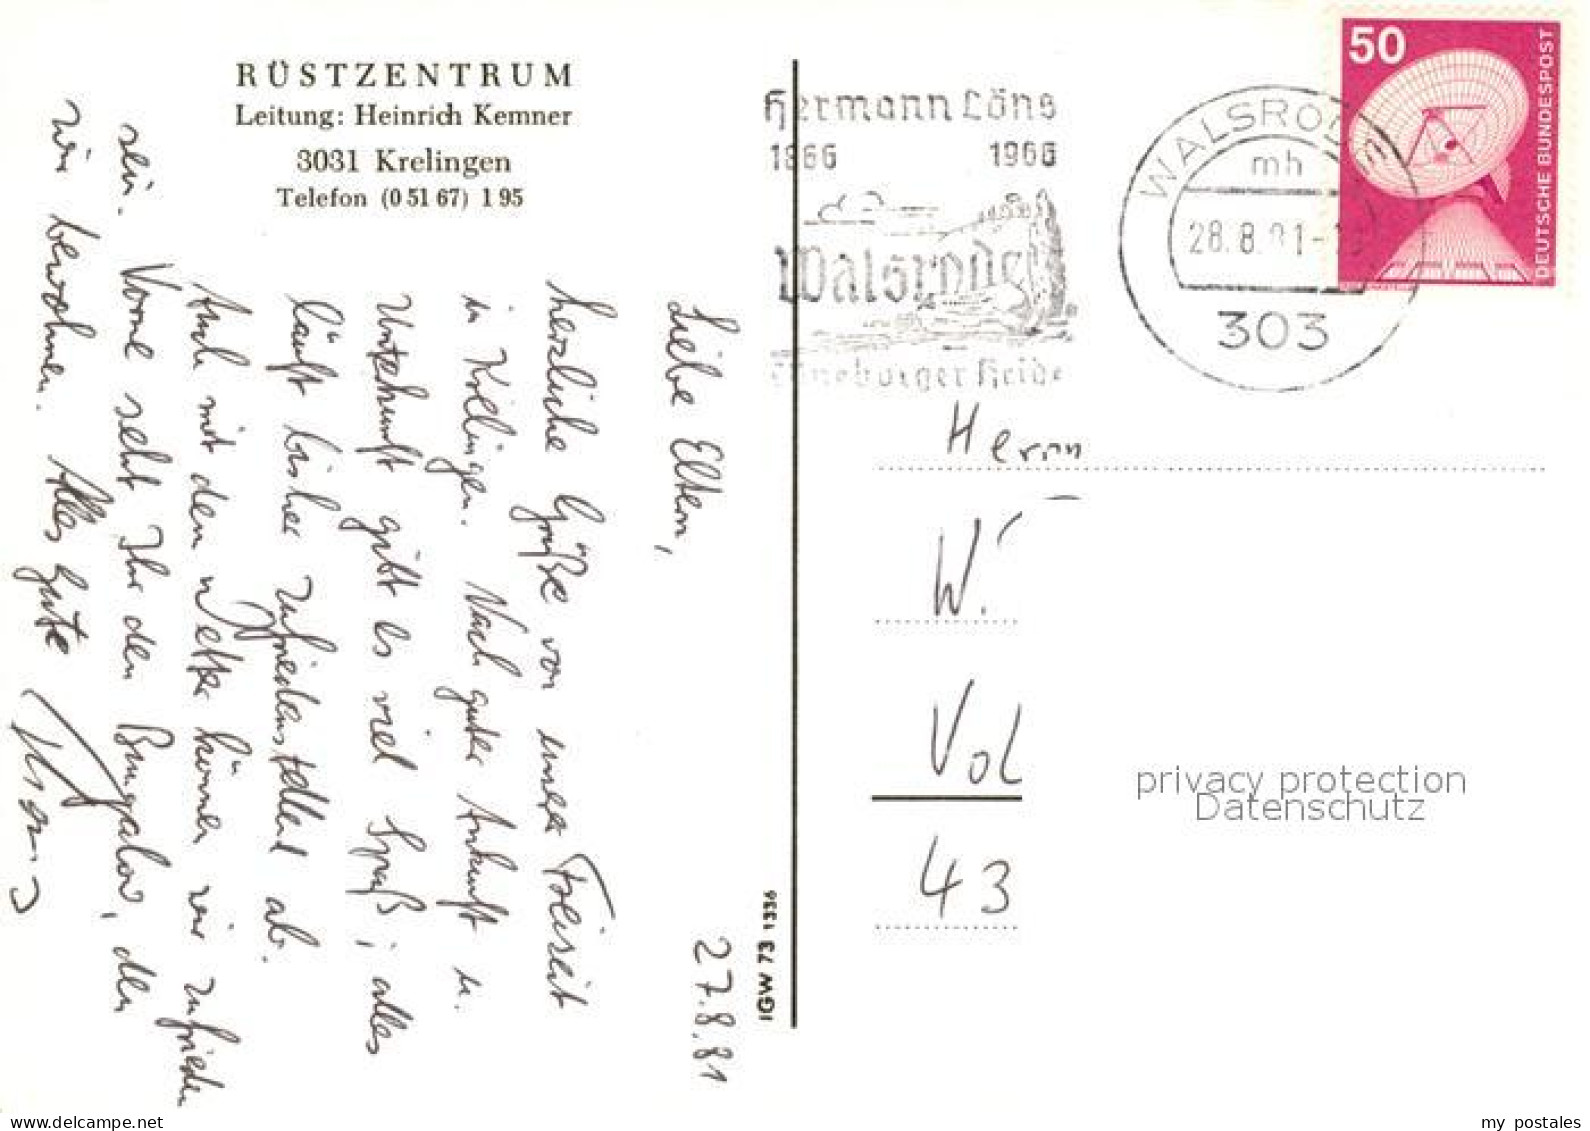 RÜSTZENTRUM
Leitung: Heinrich Kemner
3031 Krelingen
Telefon (0 51 67) 1 95
27.8.81
Liebe Eltern,
herzliche Grüße von unser Freizeit
in Krelingen. Nach guter Ankunft u.
Unterkunft gibt es viel Spaß; alles
läuft bisher zufriedenstellend ab.
Auch mit dem Wetter können wir zufrieden
sein. Vorne seht Ihr den Bungalow, den
wir bewohnen. Alles Gute
IGW 73 1336
Hermann Löns
1866 1966
Walsrode
Lüneburger Heide
WALSRODE
mh
28.8.81-
303
50
DEUTSCHE BUNDESPOST
Herrn
W.
Vol
43
privacy protection
Datenschutz
my postales